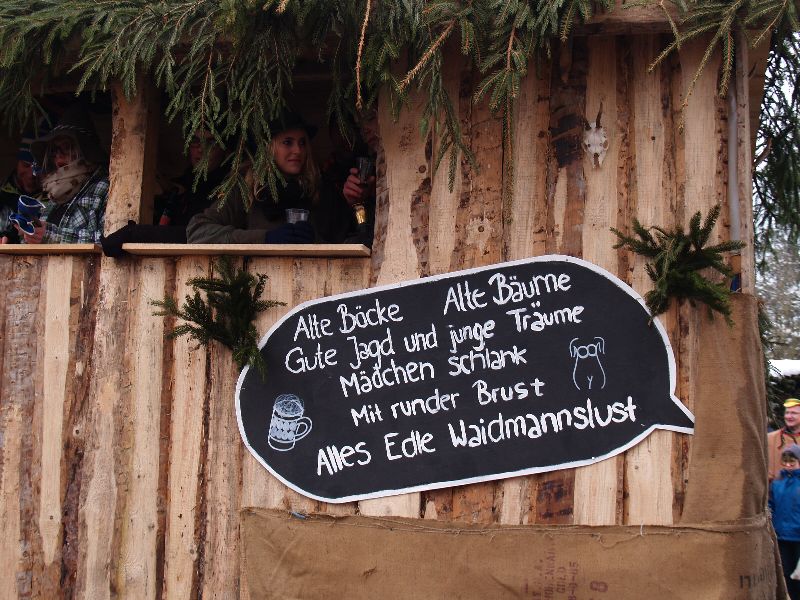 Alte Böcke Alte Bäume
Gute Jagd und junge Träume
Mädchen schlank
Mit runder Brust
Alles Edle Waidmannslust